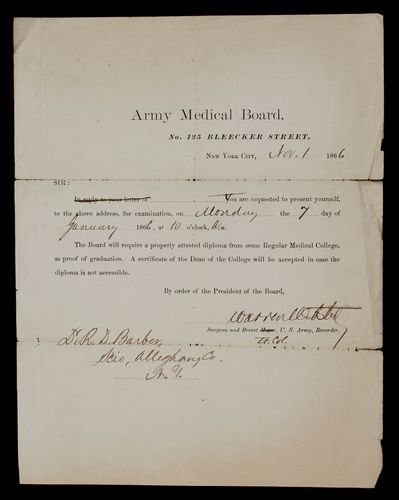 Army Medical Board,
No. 125 BLEECKER STREET,
NEW YORK CITY, Nov. 1 1866
SIR:
In reply to your letter of You are requested to present yourself,
to the above address, for examination, on Monday the 7 day of
January 1866, at 10 o'clock, A. M.
The Board will require a properly attested diploma from some Regular Medical College,
as proof of graduation. A certificate of the Dean of the College will be accepted in case the
diploma is not accessible.
By order of the President of the Board,
Warren Webster
Surgeon and Brevet Major, U. S. Army, Recorder.
Lt. Col.
Dr. R. D. Barber,
Scio, Alleghany Co.
N. Y.